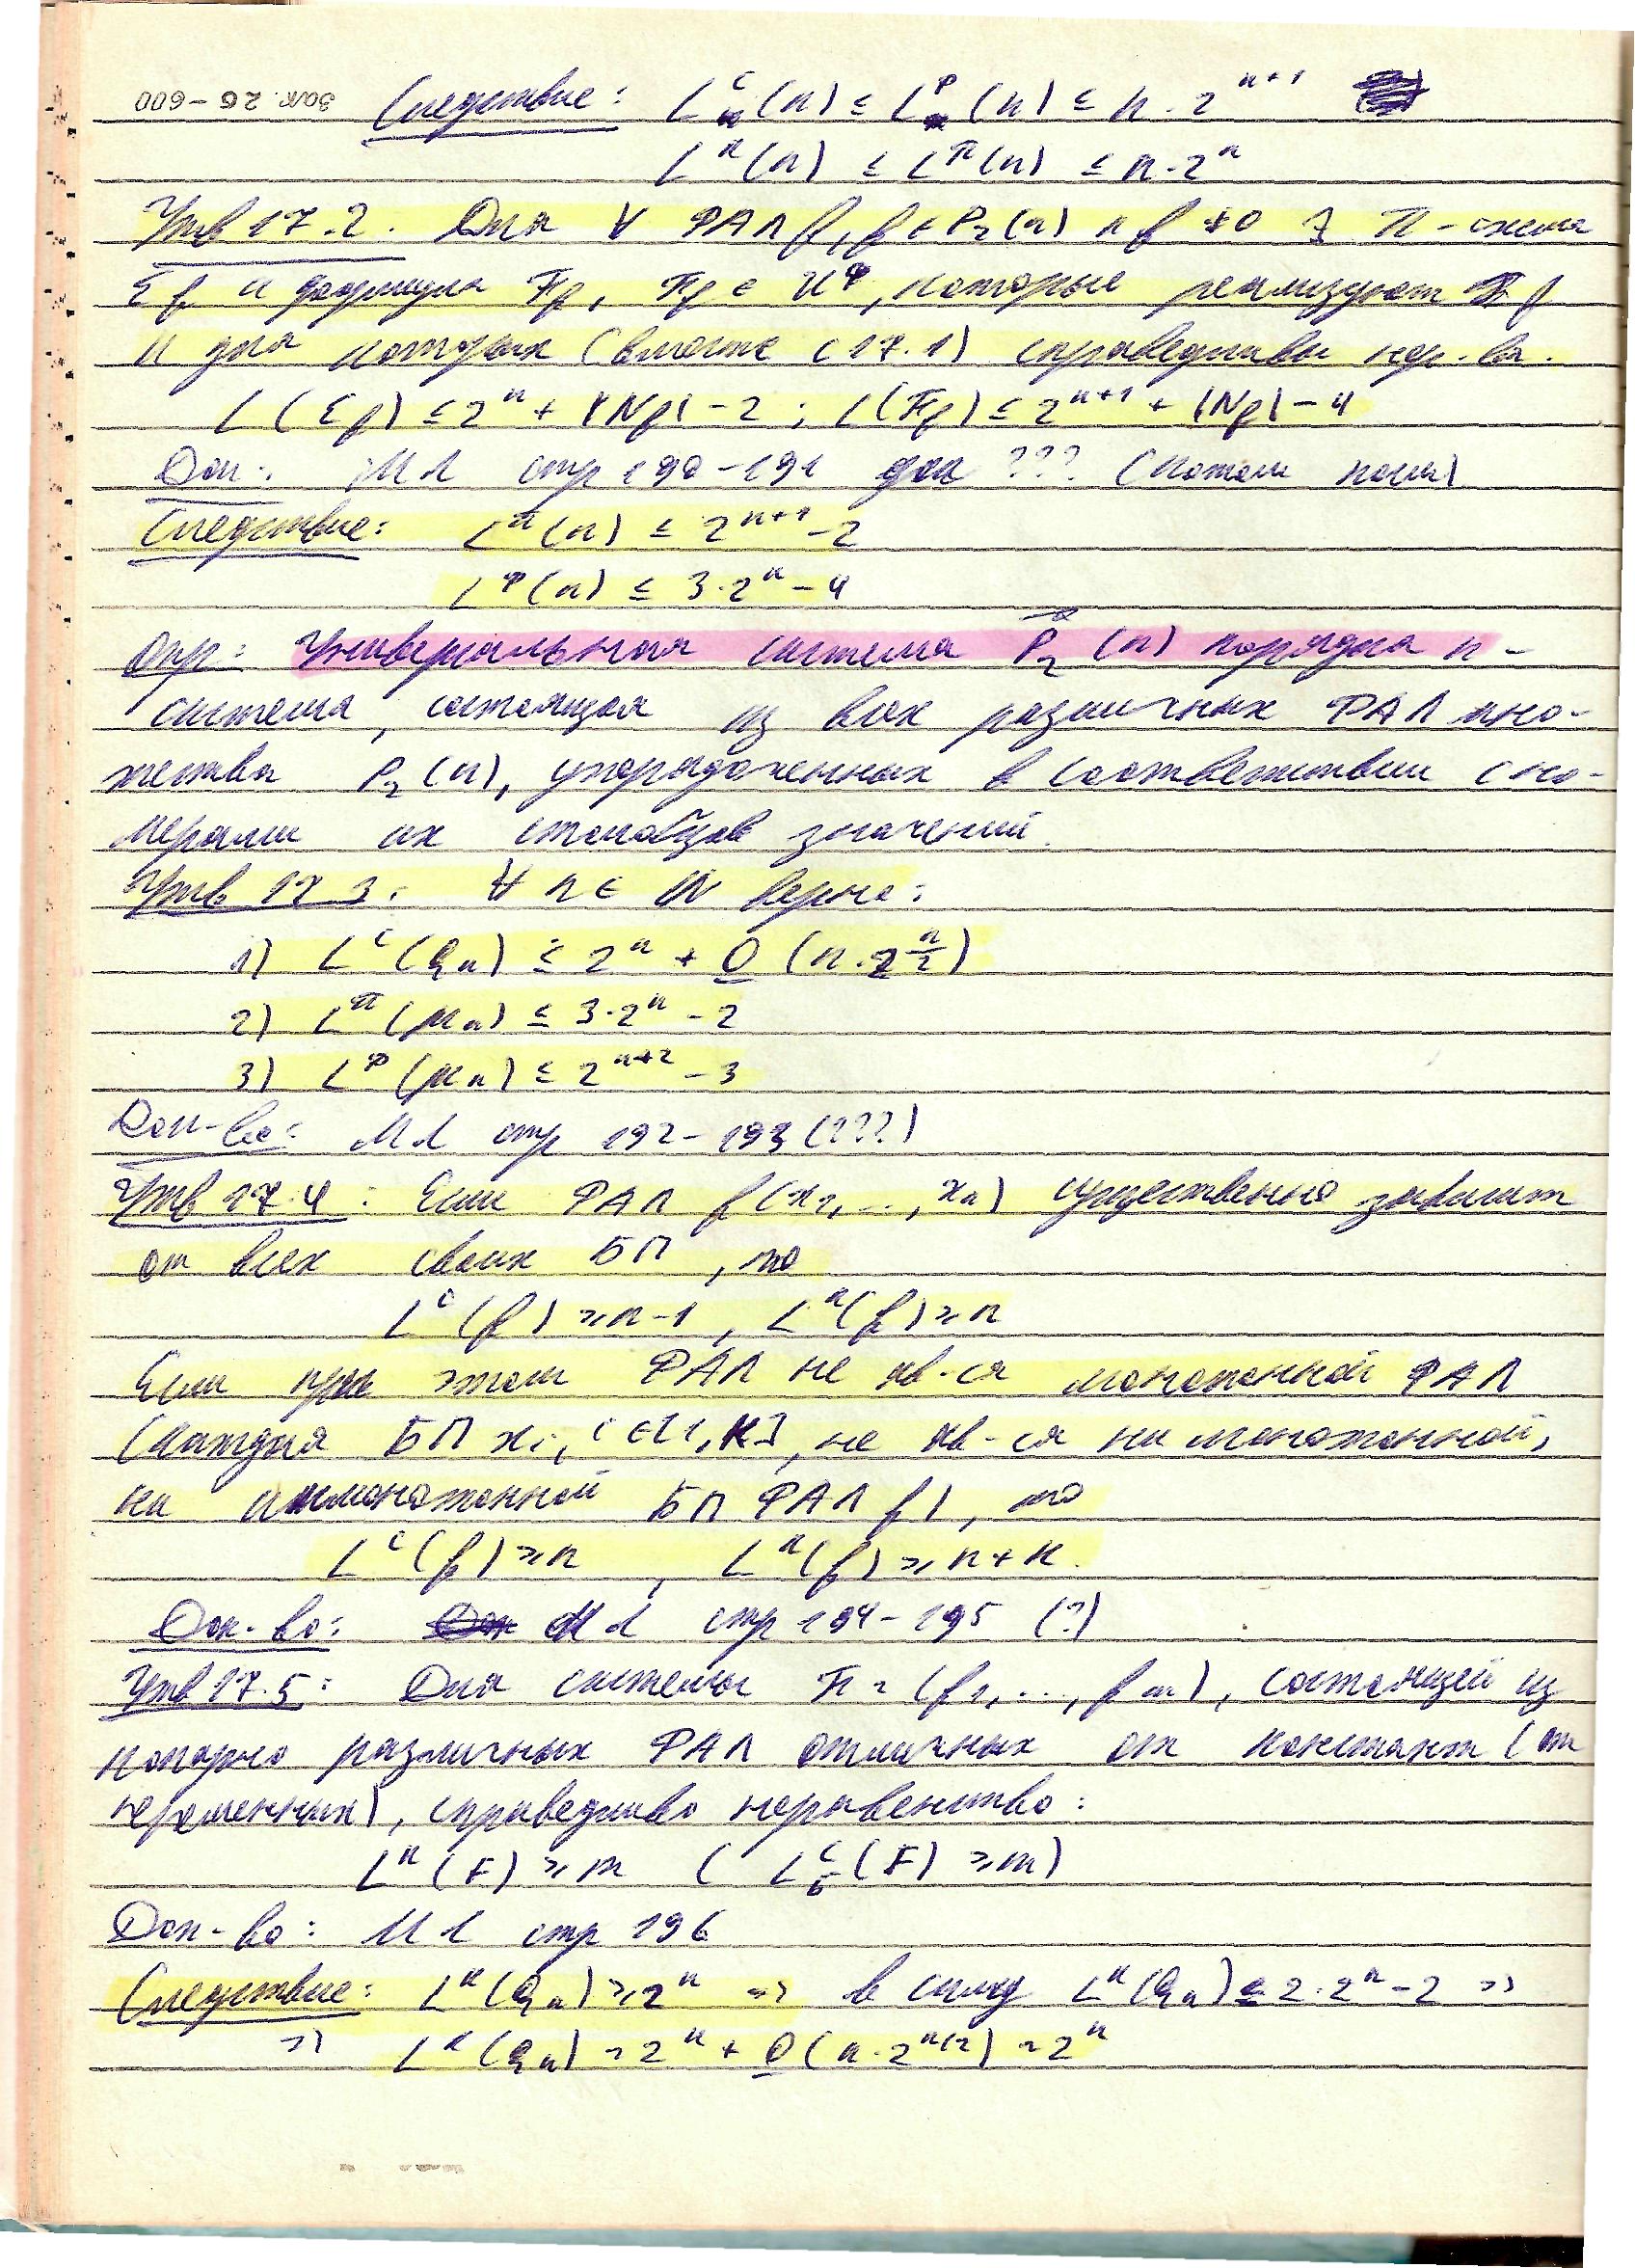 Зак. 26-600
Следствие: L^C(n) ≤ L^Ф(n) ≤ n·2^{n+1}
L^K(n) ≤ L^π(n) ≤ n·2^n
Утв 17.2. Для ∀ ФАЛ f, f ∈ P₂(n) и f ≢ 0 ∃ π-схема
Σf и формула Ff, Ff ∈ U^Ф, которые реализуют f
и для которых (вместе с 17.1) справедливы нер-ва.
L(Σf) ≤ 2^n + |Nf| - 2; L(Ff) ≤ 2^{n+1} + |Nf| - 4
Док: МЛ стр 190-191 док ??? (потом пойму)
Следствие: L^π(n) ≤ 2^{n+1} - 2
L^Ф(n) ≤ 3·2^n - 4
Опр: Универсальная система P⃗₂(n) порядка n -
система, состоящая из всех различных ФАЛ мно-
жества P₂(n), упорядоченных в соответствии с но-
мерами их столбцов значений.
Утв. 17.3: ∀ n ∈ ℕ верно:
1) L^C(Qn) ≤ 2^n + O(n·2^{n/2})
2) L^π(μn) ≤ 3·2^n - 2
3) L^Ф(μn) ≤ 2^{n+2} - 3
Док-во: МЛ стр 192-193 (???)
Утв 17.4: Если ФАЛ f(x₁,...,xn) существенно зависит
от всех своих БП, то
L^C(f) ≥ n-1, L^K(f) ≥ n
Если при этом ФАЛ не яв-ся монотонной ФАЛ
(каждая БП xi, i ∈ [1,k], не яв-ся ни монотонной,
ни инмонотонной БП ФАЛ f), то
L^C(f) ≥ n, L^K(f) ≥ n+k.
Док-во: МЛ стр 194-195 (?)
Утв 17.5: Для системы F = (f₁,...,fm), состоящей из
попарно различных ФАЛ отличных от констант (от
переменных), справедливо неравенство:
L^K(F) ≥ m ( L^C_Б(F) ≥ m)
Док-во: МЛ стр 196
Следствие: L^K(Qn) ≥ 2^n ⇒ в силу L^K(Qn) ≤ 2·2^n - 2 ⇒
⇒ L^C(Qn) = 2^n + O(n·2^{n/2}) ~ 2^n